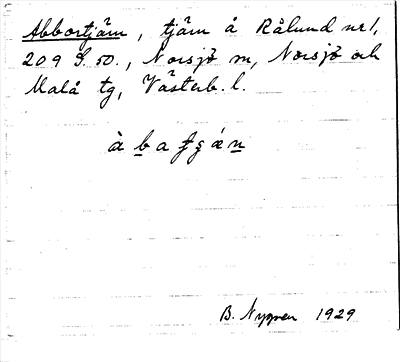 Abbortjärn, tjärn å Rålund nr 1,
209 S. 50., Norsjö sn, Norsjö och
Malå tg, Västerb. l.
B. Nygren 1929